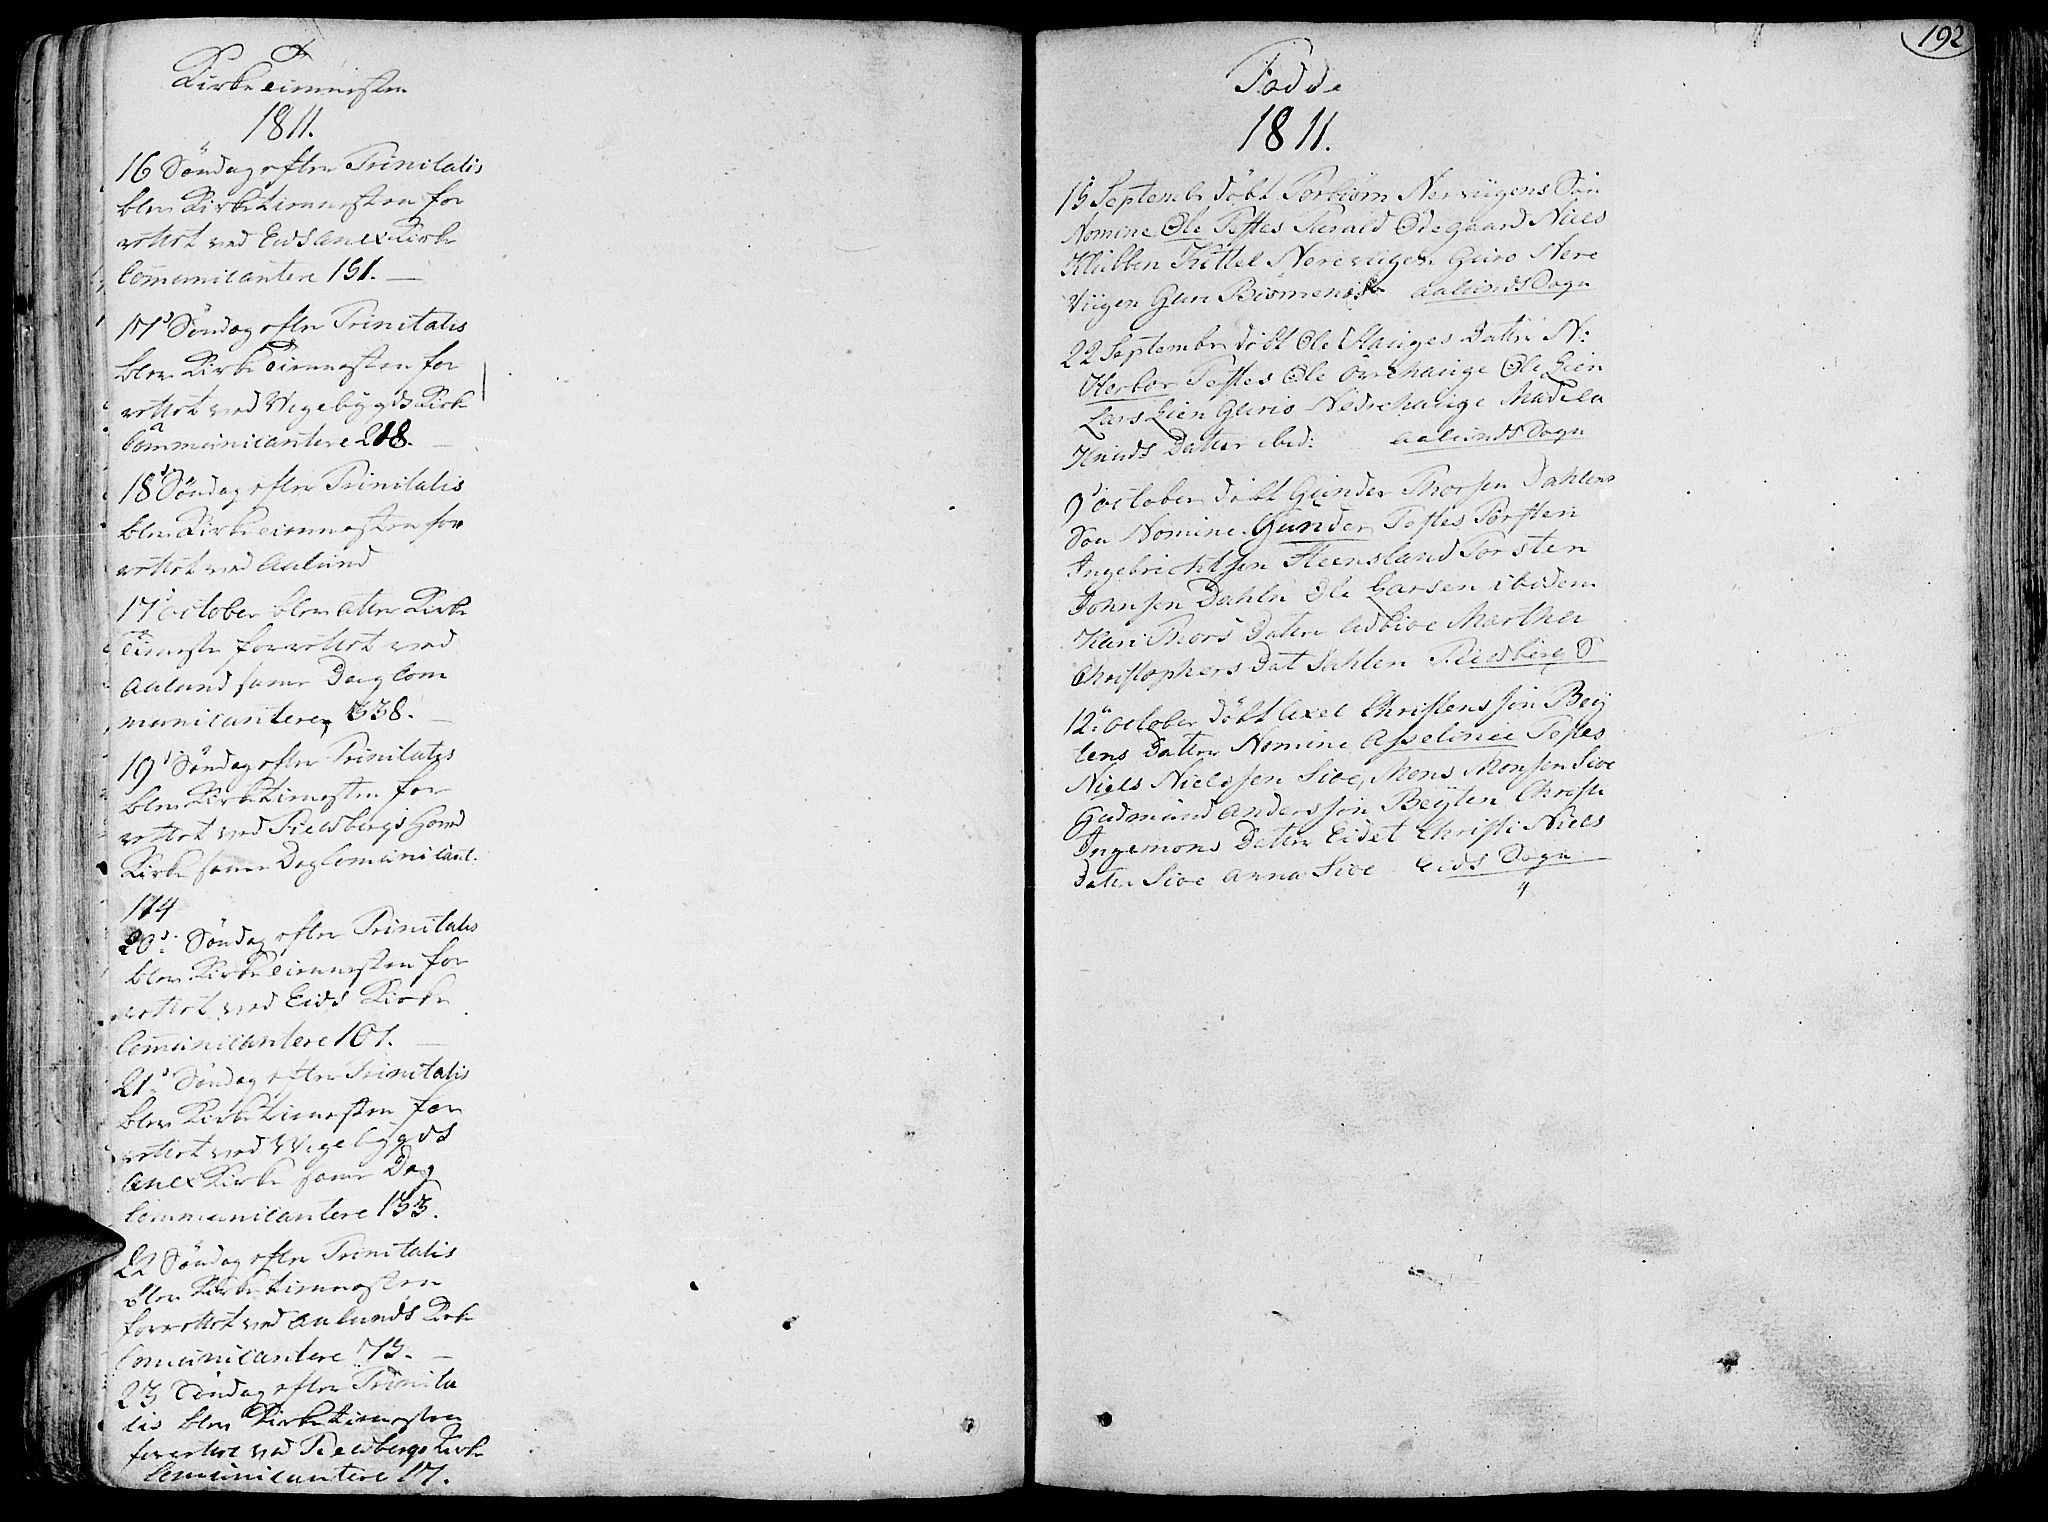 Kirketienesten
1811.
16 Søndag efter Trinitatis
blev Kirketienesten for
rettet ved Eids Anex Kirke
Comunicantere 151. —
17d Søndag efter Trinitatis
blev Kirketienesten for
rettet ved Vigebÿgds Kirke
Communicantere 218. —
18d Søndag efter Trinitatis
blev Kirketienesten for
rettet ved Aalund
17d October blev atter Kirke
Tieneste forrettet ved
Aalund samme Dag Com
municantere 338. —
19d Søndag efter Trinitatis
blev Kirketienesten for
rettet ved Fieldbergs Hoved
Kirke samme Dag Comunicant.
174
20d Søndag efter Trinitatis
blev Kirketienesten for
rettet ved Eids Kirke
Comunicantere 107. —
21d Søndag efter Trinitatis
blev Kirketienesten for
rettet ved Vigebÿgds
Anex Kirke samme Dag
Communicantere 133.
22 Søndag efter Trinitatis
blev Kirketienesten
forrettet ved Aalunds Kirke
Comunicantere 73. —
23 Søndag efter Trinita
tis blev Kirketienesten
forrettet ved Fieldbergs Kirke
Comunicantere 17.
192
Fødde
1811.
15 Septembr døbt Torbiørn Nerviigens Søn
Nomine Ole Testes Harald Ødegaard Niels
Klubben Kittel Nereviigen Guro Nere
Viigen Gun Aalunds Sogn
22 Septembr døbt Ole Hauges Datter N:
Herbor Testes Ole Øvrehauge Ole Lien
Lars Lien Gurio Nedrehauge Madela
Knuds Datter ibid: Aalunds Sogn
9d October døbt Gunder Thorsen Dahlens
Søn Nomine Gunder Testes Torsten
Ingebrichtsen Steensland Torsten
Johnsen Dahlen Ole Larsen ibidem
Kari Thors Datter Marthe
Christophers Dat Dahlen Fieldberg S
12 October døbt Axel Christensson Beÿ
tens Datter Nomine Asselinee Testes
Niels Nielssen Sioe, Mons Monsen Sioe
Gudmund Anderssøn Beÿten Christi
Ingemons Datter Eidet Christi Niels
Datter Sioe Anna Sioe Eids Sogn